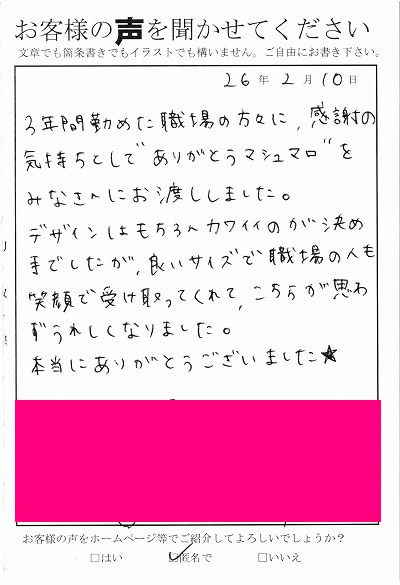 お客様の声を聞かせてください
文章でも箇条書きでもイラストでも構いません。ご自由にお書き下さい。
26年2月10日
3年間勤めた職場の方々に、感謝の
気持ちとして"ありがとうマシュマロ"を
みなさんにお渡ししました。
デザインはもちろんカワイイのが決め
手でしたが、良いサイズで職場の人も
笑顔で受け取ってくれて、こちらが思わ
ずうれしくなりました。
本当にありがとうございました★
お客様の声をホームページ等でご紹介してよろしいでしょうか？
□はい ☑匿名で □いいえ